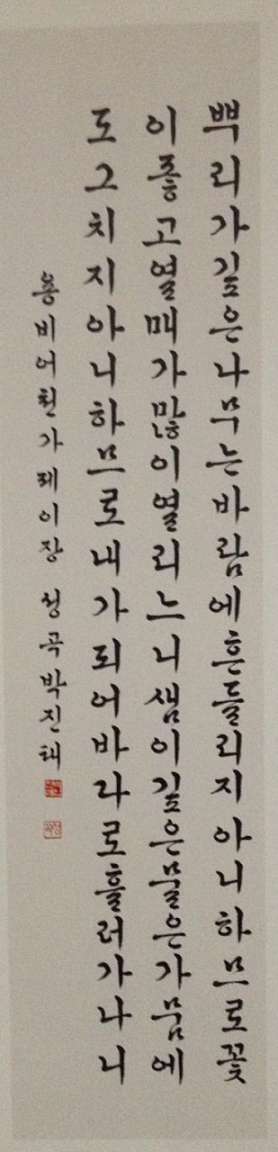 뿌리가깊은나무는바람에흔들리지아니하므로꽃
이좋고열매가많이열리느니샘이깊은물은가뭄에
도그치지아니하므로내가되어바라로흘러가나니
용비어천가제이장 청곡박진태